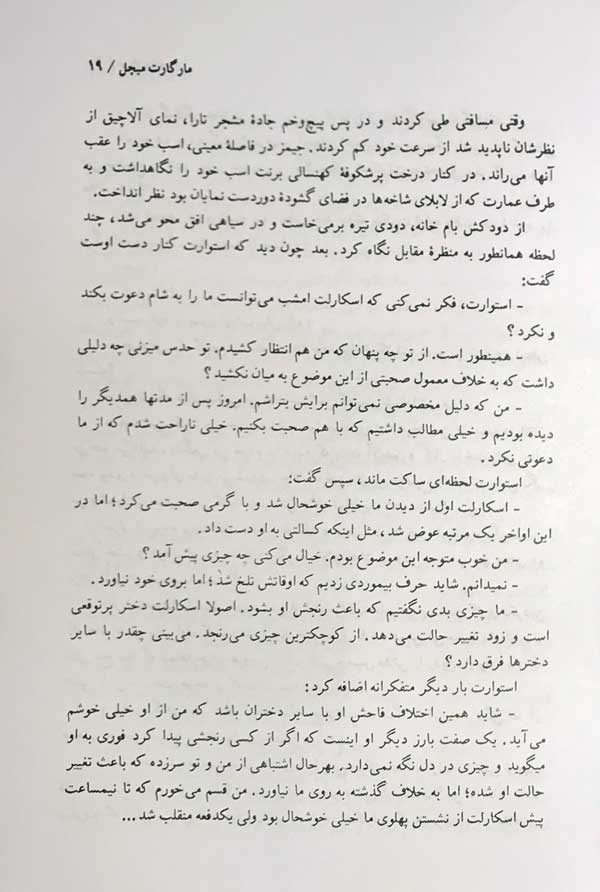 مارگارت میچل / ۱۹
وقتی مسافتی طی کردند و در پس پیچ‌وخم جادهٔ مشجر تارا، نمای آلاچیق از
نظرشان ناپدید شد از سرعت خود کم کردند. جیمز در فاصلهٔ معینی، اسب خود را عقب
آنها می‌راند. در کنار درخت پرشکوفهٔ کهنسالی برنت اسب خود را نگاهداشت و به
طرف عمارت که از لابلای شاخه‌ها در فضای گشودهٔ دوردست نمایان بود نظر انداخت.
از دودکش بام خانه، دودی تیره برمی‌خاست و در سیاهی افق محو می‌شد، چند
لحظه همانطور به منظرهٔ مقابل نگاه کرد. بعد چون دید که استوارت کنار دست اوست
گفت:
- استوارت، فکر نمی‌کنی که اسکارلت امشب می‌توانست ما را به شام دعوت بکند
و نکرد؟
- همینطور است. از تو چه پنهان که من هم انتظار کشیدم. تو حدس میزنی چه دلیلی
داشت که به خلاف معمول صحبتی از این موضوع به میان نکشید؟
- من که دلیل مخصوصی نمی‌توانم برایش بتراشم. امروز پس از مدتها همدیگر را
دیده بودیم و خیلی مطالب داشتیم که با هم صحبت بکنیم. خیلی ناراحت شدم که از ما
دعوتی نکرد.
استوارت لحظه‌ای ساکت ماند، سپس گفت:
- اسکارلت اول از دیدن ما خیلی خوشحال شد و با گرمی صحبت می‌کرد؛ اما در
این اواخر یک مرتبه عوض شد، مثل اینکه کسالتی به او دست داد.
- من خوب متوجه این موضوع بودم. خیال می‌کنی چه چیزی پیش آمد؟
- نمیدانم. شاید حرف بیموردی زدیم که اوقاتش تلخ شد؛ اما بروی خود نیاورد.
- ما چیزی بدی نگفتیم که باعث رنجش او بشود. اصولا اسکارلت دختر پرتوقعی
است و زود تغییر حالت می‌دهد. از کوچکترین چیزی می‌رنجد. می‌بینی چقدر با سایر
دخترها فرق دارد؟
استوارت بار دیگر متفکرانه اضافه کرد:
- شاید همین اختلاف فاحش او با سایر دختران باشد که من از او خیلی خوشم
می‌آید. یک صفت بارز دیگر او اینست که اگر از کسی رنجشی پیدا کرد فوری به او
میگوید و چیزی در دل نگه نمی‌دارد. بهرحال اشتباهی از من و تو سرزده که باعث تغییر
حالت او شده؛ اما به خلاف گذشته به روی ما نیاورد. من قسم می‌خورم که تا نیمساعت
پیش اسکارلت از نشستن پهلوی ما خیلی خوشحال بود ولی یکدفعه منقلب شد...